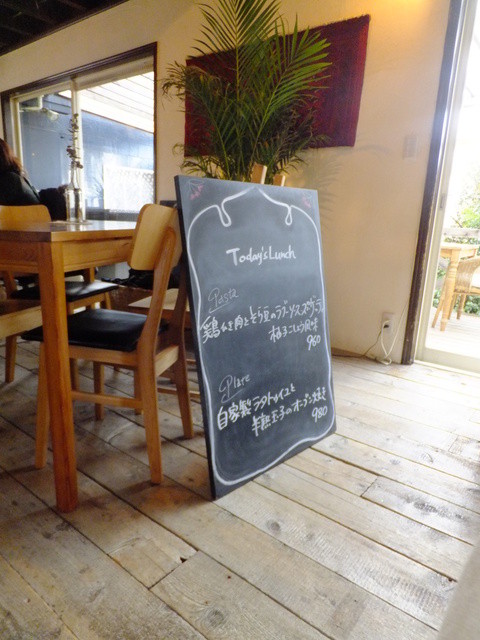 Today's Lunch
Pasta
鶏ひき肉とそら豆のラグーソーススパゲッティ
柚子こしょう風味
960
Plate
自家製ラタトゥイユと
半熟玉子のオーブン焼き
980